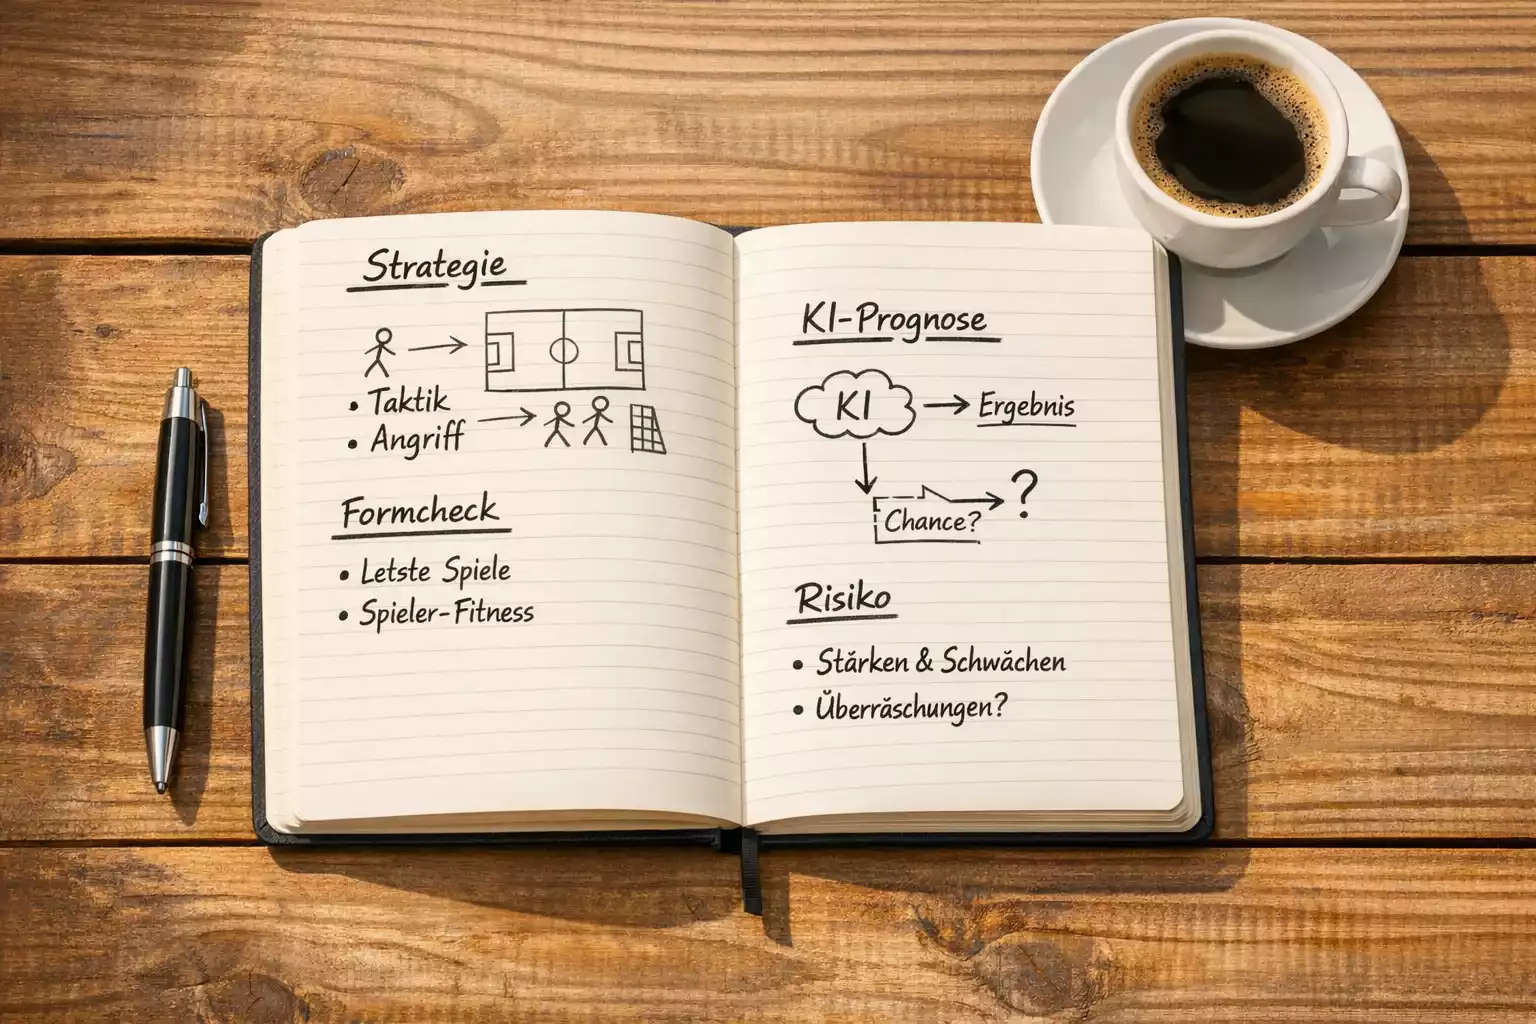 Strategie
• Taktik
• Angriff
Formcheck
• Letste Spiele
• Spieler-Fitness
KI-Prognose
KI → Ergebnis
Chance? → ?
Risiko
• Stärken & Schwächen
• Überräschungen?